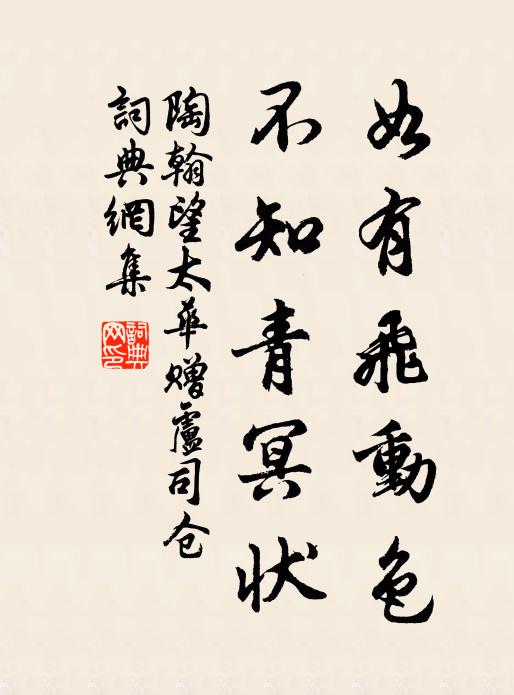 如有飛動色
不知青冥状
陶翰望太華贈盧司仓
詞典網集
詞典網印